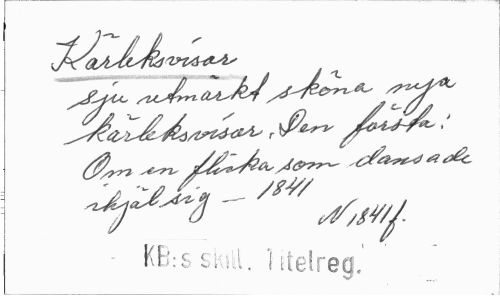 Kärleksvisor
sju utmärkt sköna nya
kärleksvisor. Den första:
Om en flicka som dansade
ihjäl sig — 1841
N 1841 f.
KB:s skill. Titelreg.